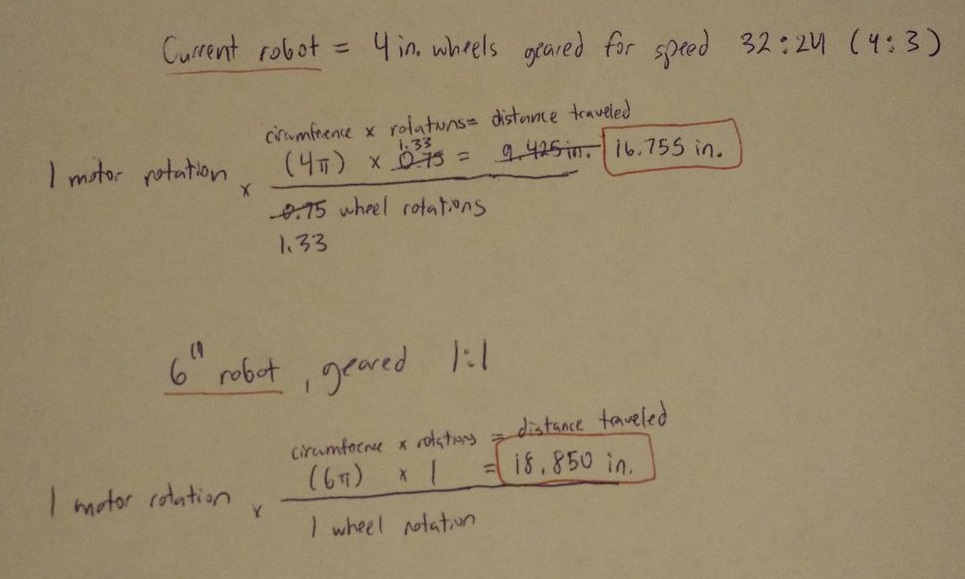 Current robot = 4 in. wheels geared for speed 32:24 (4:3)
circumfrence x rotations= distance traveled
1.33
1 motor rotation x (4π) x 0.75 = 9.425 in. 16.755 in.
0.75 wheel rotations
1.33
6" robot, geared 1:1
circumfrence x rotations = distance traveled
1 motor rotation x (6π) x 1 = 18.850 in.
1 wheel rotation